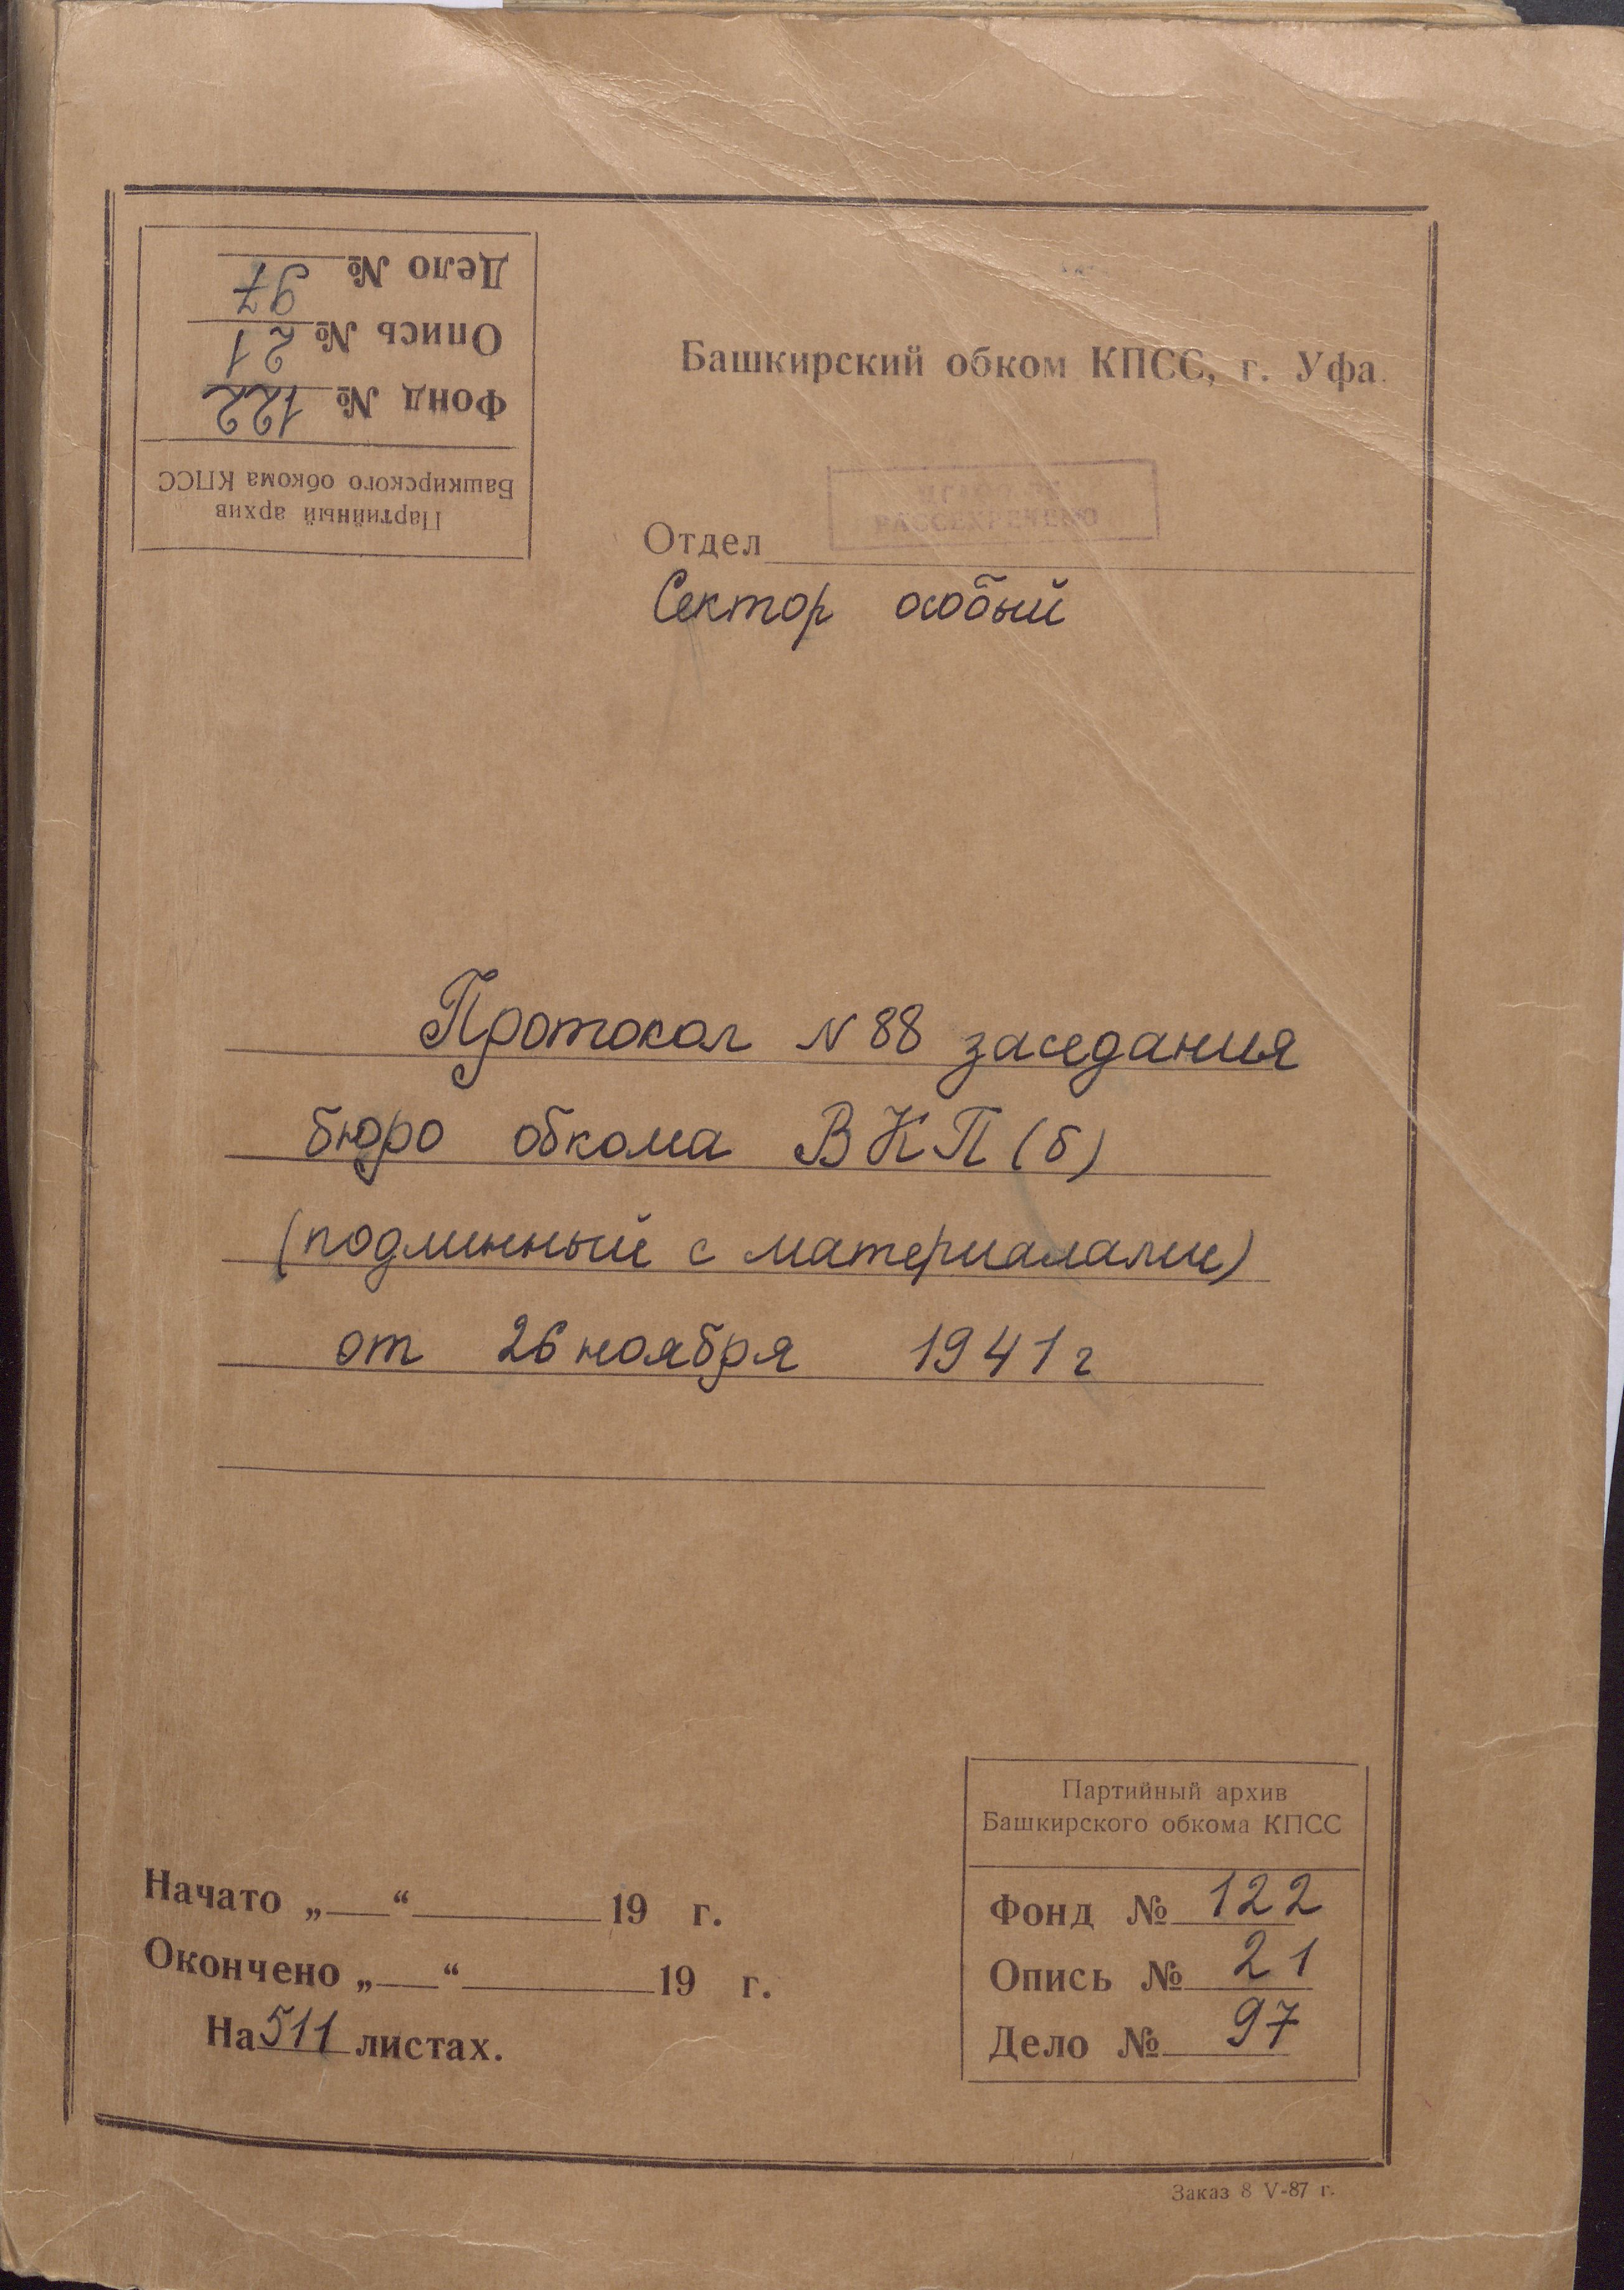 Дело № 97
Опись № 21
Фонд № 122
Партийный архив
Башкирского обкома КПСС
Башкирский обком КПСС, г. Уфа.
РАССЕКРЕЧЕНО
Отдел
Сектор особый
Протокол N 88 заседания
бюро обкома ВКП(б)
(подлинный с материалами)
от 26 ноября 1941 г
Начато „ “ 19 г.
Окончено „ “ 19 г.
На 511 листах.
Партийный архив
Башкирского обкома КПСС
Фонд № 122
Опись № 21
Дело № 97
Заказ 8 V-87 г.